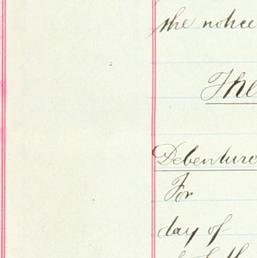 the notice
The
Debenture
For
day of